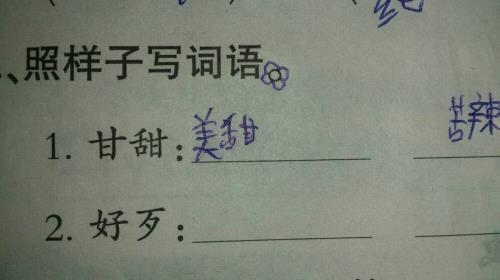 、照样子写词语
1. 甘甜：美甜 苦辣
2. 好歹：